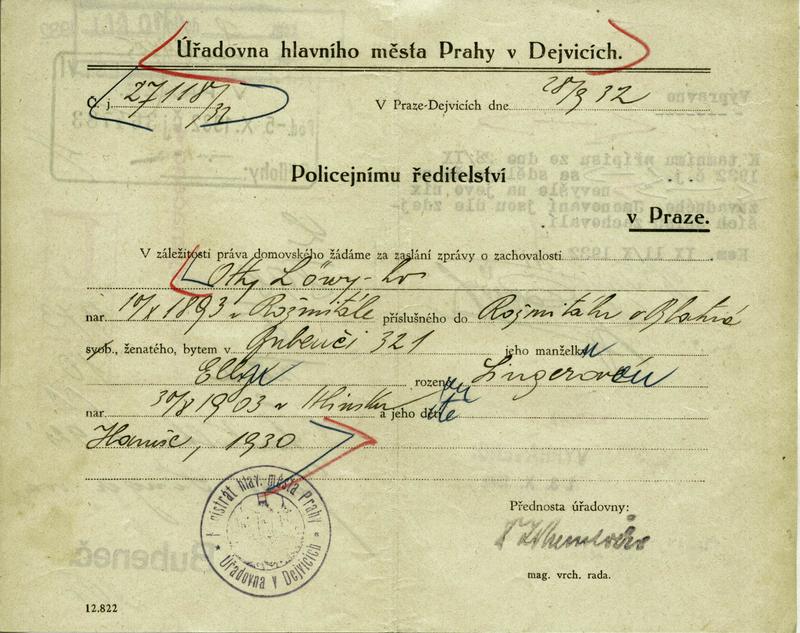 Úřadovna hlavního města Prahy v Dejvicích.
Č. j. 27118/32
V Praze-Dejvicích dne 28/9 32
Policejnímu ředitelství
v Praze.
V záležitosti práva domovského žádáme za zaslání zprávy o zachovalosti
Otty Löwy-ho
nar. 10/X 1893 v Rožmitále příslušného do Rožmitálu o Blatná
svob., ženatého, bytem v Bubenči 321 jeho manželku
Ellu rozenou Lingerovou
nar. 30/X 1903 v Hlinsku a jeho dítě
Hanuše, 1930
Magistrát hlav. města Prahy
Úřadovna v Dejvicích
Přednosta úřadovny:
mag. vrch. rada.
12.822